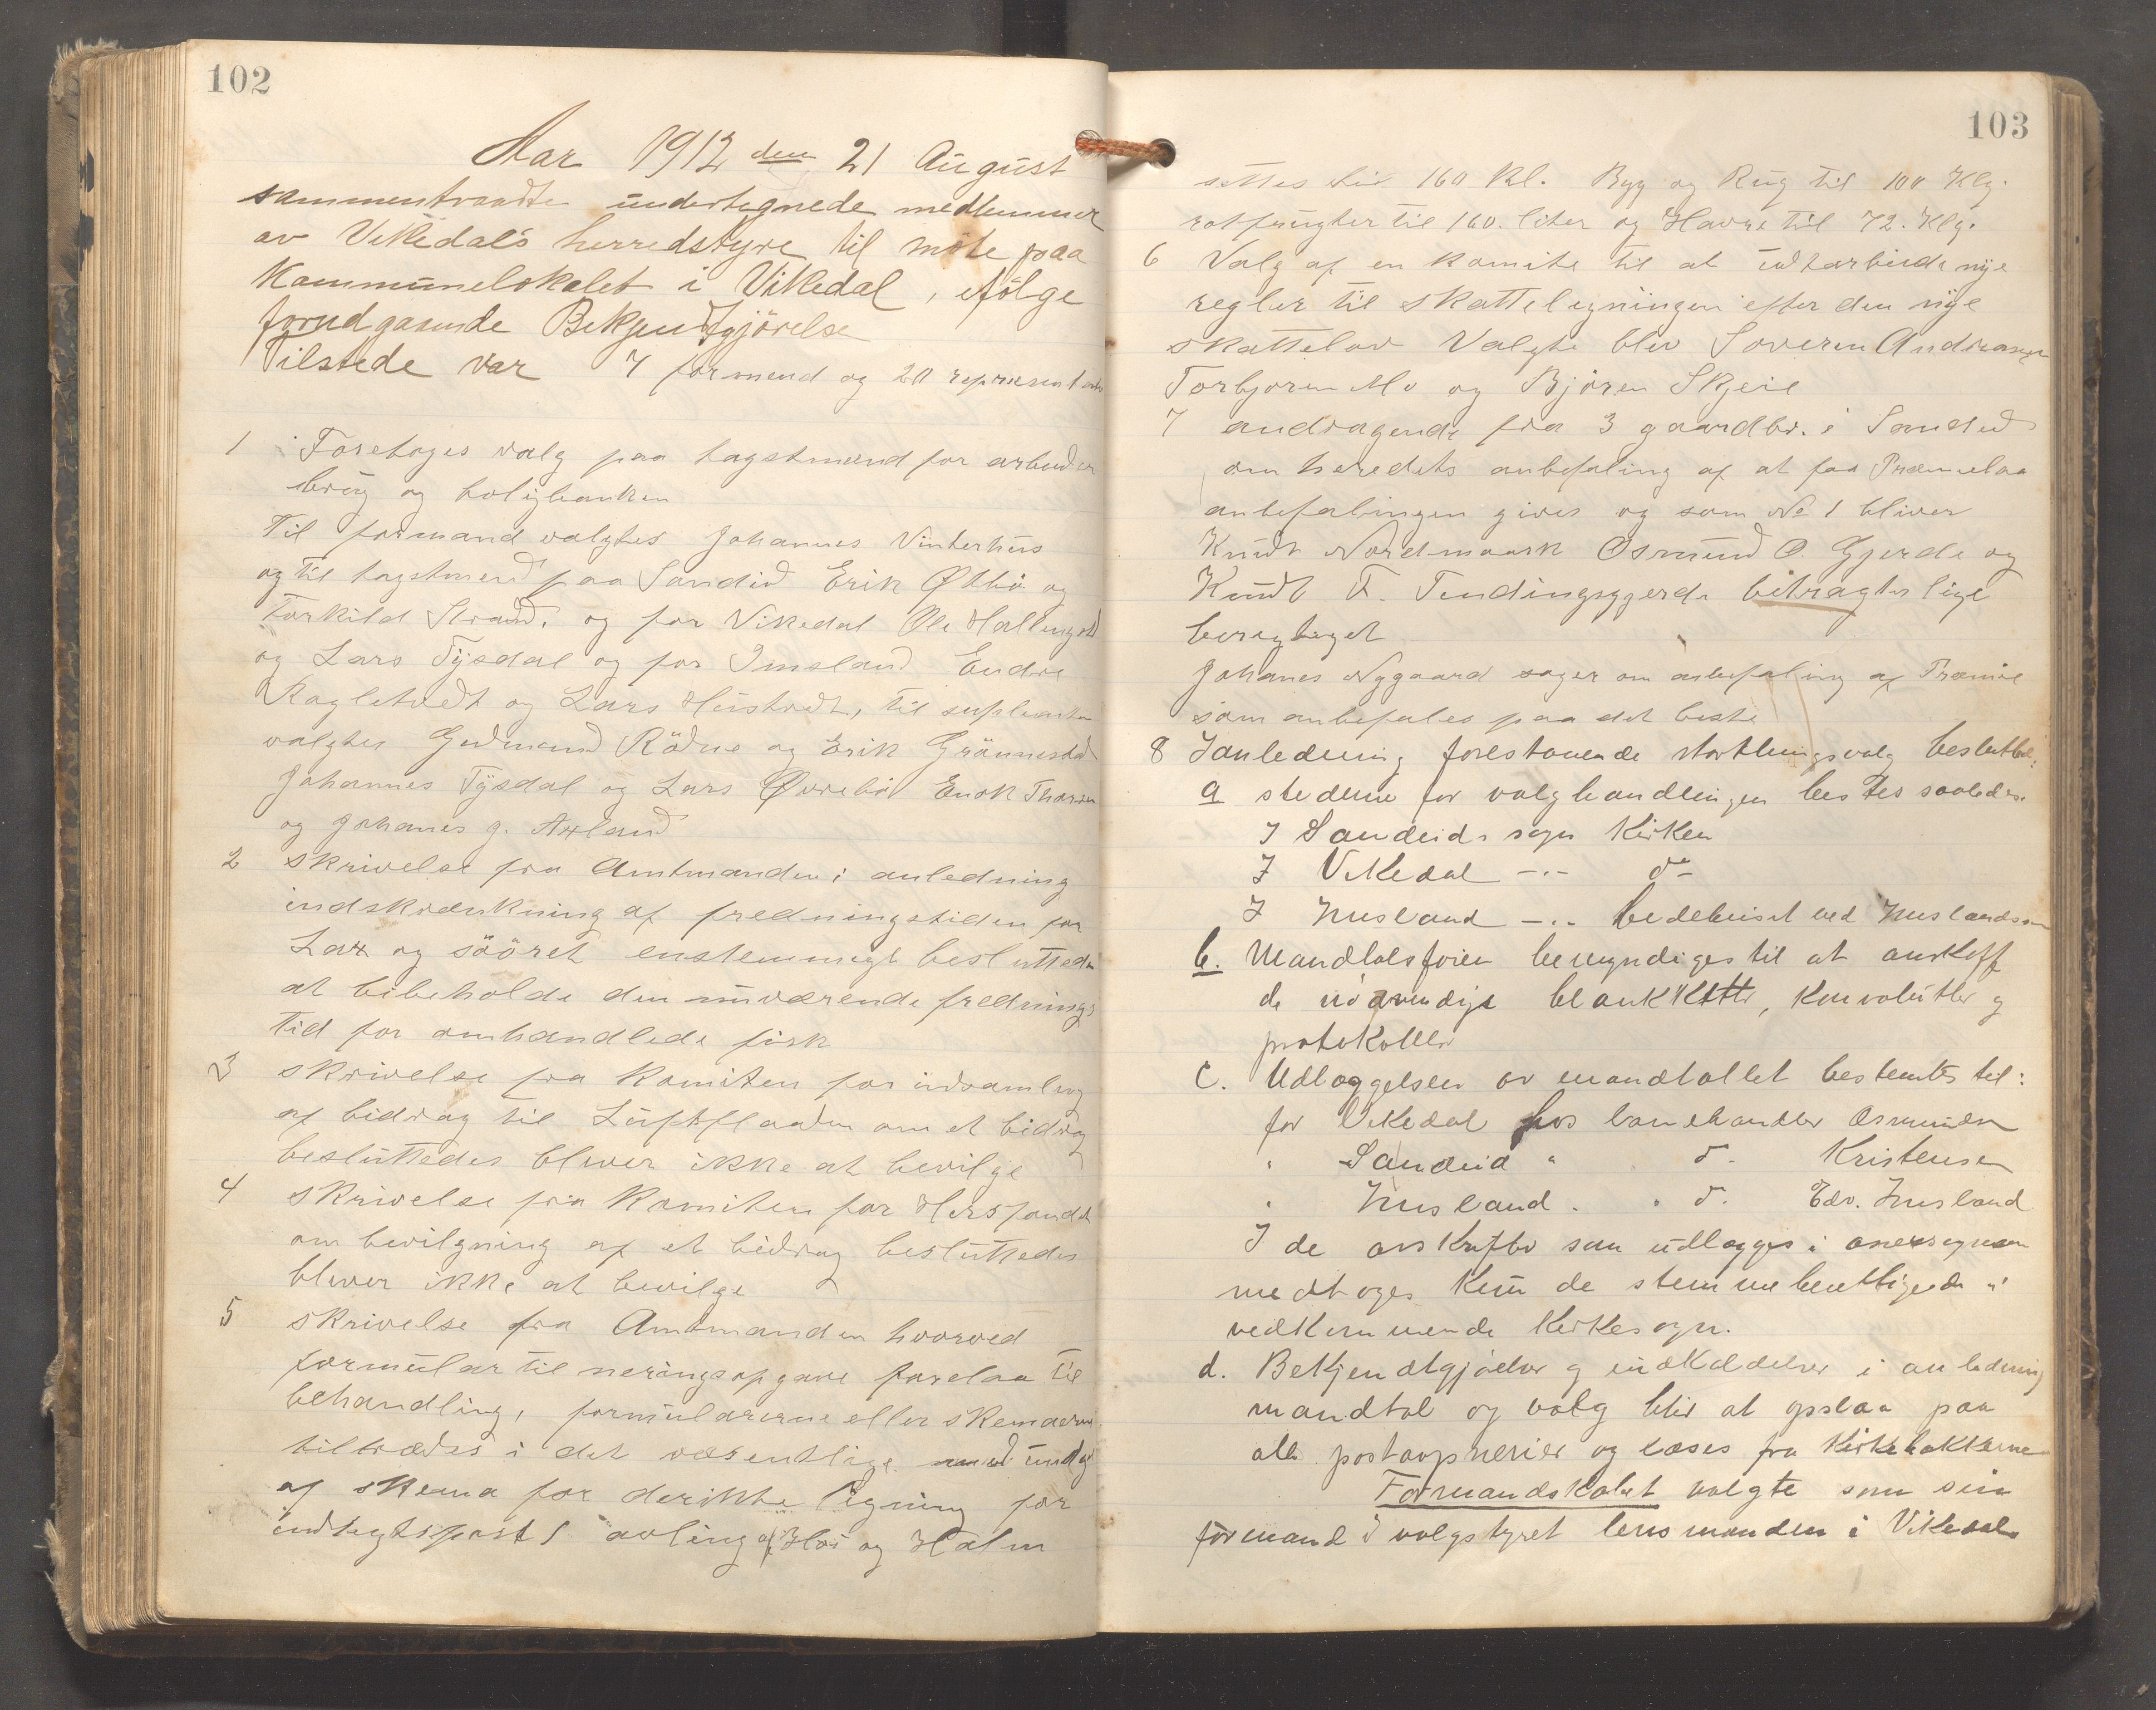 102
Aar 1912 den 21 August
sammentraadte undertegnede medlemmer
av Vikedals herredstyre til möte paa
Kommunelokalet i Vikedal, ifölge
forudgaaende Bekjendtgjörelse
Tilstede var 7 formend og 20 representanter
1 Foretoges valg paa tagstmænd for arbeider
brug og boligbanken
Til formand valgtes Johannes Vinterhus
og til tagstmend paa Sandeid Erik Østbö og
Torkild Strand, og for Vikedal Ole Hallingstad
og Lars Tysdal og for Imsland Endre
Ragletvedt og Lars Hustvedt, til suplianter
valgtes Gudmund Rödne og Erik Grönnestad
Johannes Tysdal og Lars Øvrebö Enok Thorsen
og Johanes J. Axland
2 skrivelse fra Amtmanden i anledning
indskrænkning af fredningstiden for
Lax og söört enstemmigt besluttedes
at bibeholde den nuværende frednings
tid for omhandlede fisk
3 skrivelse fra Komiten for indsamling
af bidrag til Luftflaaden om et bidrag
besluttedes bliver ikke at bevilge
4 skrivelse fra Komiten for Hersfondet
om bevilgning af et bidrag besluttedes
bliver ikke at bevilge
5 skrivelse fra Amtmanden hvorved
formular til neringsopgave forelaa til
behandling, formularerne eller skemaerne
tiltrædes i det væsentlige med undg
af skema for derikte ligning for
indtegtspost 1 avling af Høi og Halm
103
settes til 160 Kl. Byg og Rug til 100 Klg.
rotfrugter til 160. liter og Havre til 72. Klg.
6 Valg af en komite til at udtarbeide nye
regler til skatteligningen efter den nye
skattelov Valgte blev Soveren Andreasen
Torbjoren Mo og Björen Skjeie
7 andragende fra 3 gaardbr. i Sandeid
om heredets anbefaling af at faa Præmielaa
anbefalingen gives og som No 1 bliver
Knudt Nordmaark Osmund O. Gjerde og
Knudt T. Tendingsgjerde betragtes lige
beregtiget
Johanes Nygaard söger om anbefaling af Præmie
som anbefales paa det beste
8 Ianledning forestaaende stortingsvalg besluttedes:
a stederne for valghandlingen bestes saaledes:
I Sandeids sogn Kirken
I Vikedal -"- do
I Imsland -"- bedehuset ved Imslandsøen
b. Mandtalsförer bemyndiges til at anskaff
de nödvendige blanketter, Konvolutter og
protokoller
c. Udlæggelsen av mandtallet bestemtes til:
for Vikedal hos landhandler Osmundsen
" Sandeid " do. Kristensen
" Imsland. " do. Edv. Imsland
I de avskrifter som udlægges i annexsognene
medtages kun de stemmeberettigede i
vedkommende Kirkesogn.
d. Bekjendtgjörelser og indkaldelser i anledning
mandtal og valg blir at opslaa paa
alle postaapnerier og læses fra Kirkebakkerne
Formandskabet valgte som sin
formand i valgstyret lensmanden i Vikedal